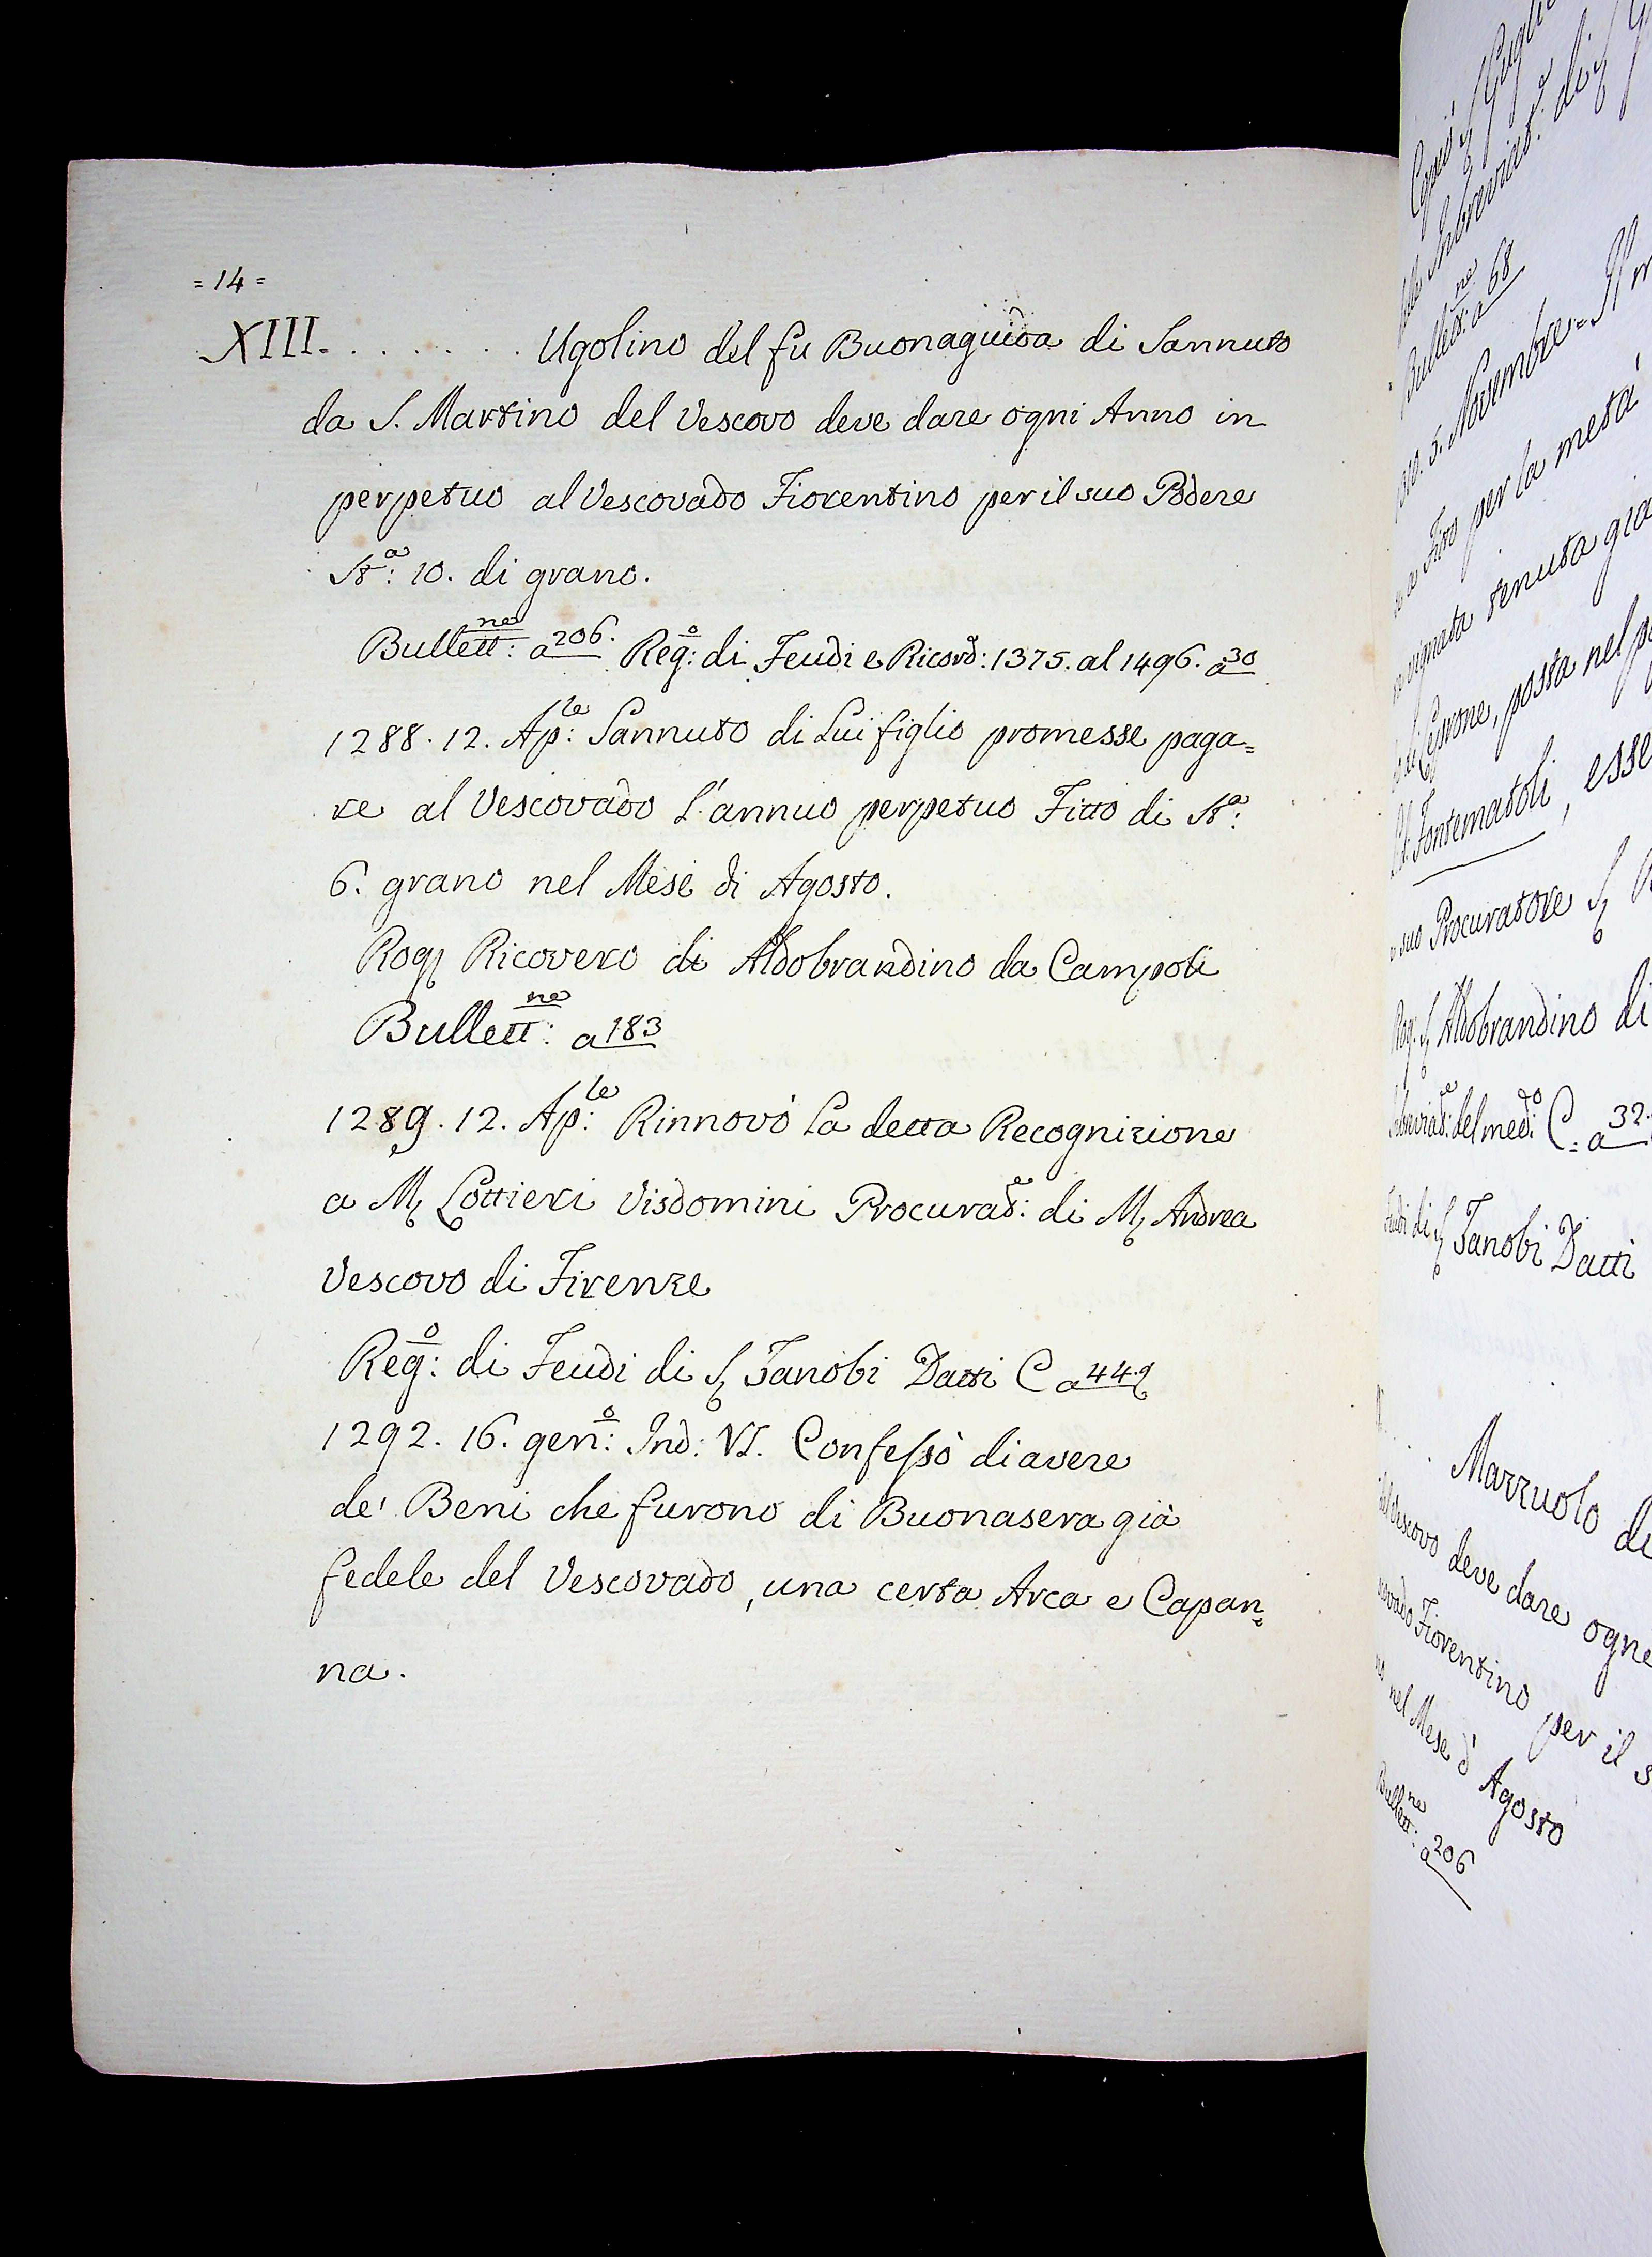 =14=
XIII. . . . . . . . Ugolino del fu Buonaguida di Sannuto
da S. Martino del Vescovo deve dare ogni Anno in
perpetuo al Vescovado Fiorentino per il suo Podere
St.ª: 10. di grano.
Bullett:ne a 206. Reg:o di Feudi e Ricord: 1375. al 1496. a 30
1288. 12. Ap:le Sannuto di Lui figlio promesse paga=
re al Vescovado l'annuo perpetuo Fitto di St.ª:
6. grano nel Mese di Agosto.
Rog. Ricovero di Aldobrandino da Campoli
Bullett:ne a 183
1289. 12. Ap:le Rinnovò la detta Recognizione
a M. Lottieri Visdomini Procurat:e di M. Andrea
Vescovo di Firenze
Reg:o di Feudi di S. Zanobi Datti C a 44.
1292. 16. gen:o Ind: VI. Confessò di avere
de' Beni che furono di Buonasera già
fedele del Vescovado, una certa Arca e Capan=
na.
Bullett:ne a 68
5. Novembre =
a Fitto per la metà
vignata tenuta già
posta nel
Fontematoli, esse
suo Procuratore S.
Rog: S. Aldobrandino di
del med:o C. = a 32.
Feudi di S. Zanobi Datti
Mazzuolo di
del Vescovo deve dare ogne
Fiorentino per il s
nel Mese d'Agosto
Bullett:ne a 206